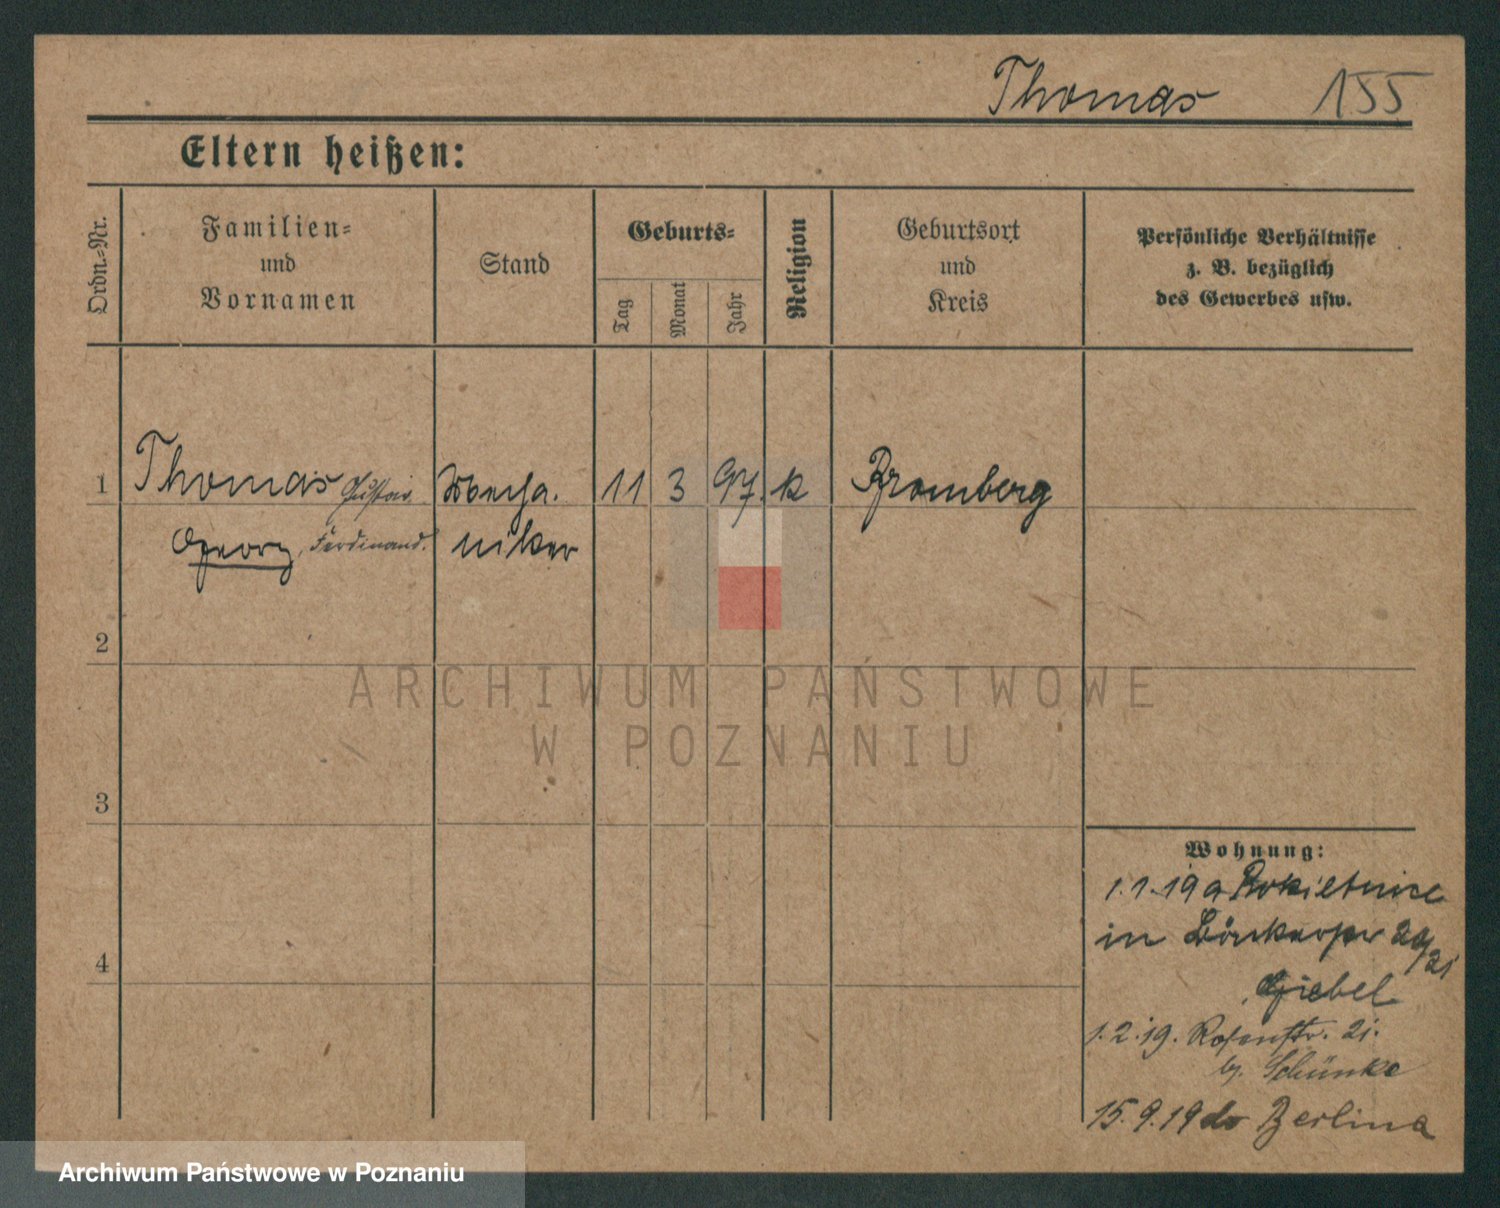 Thomas 155
Eltern heißen:
Ordn.-Nr.
Familien- und Vornamen
Stand
Geburts-
Tag
Monat
Jahr
Religion
Geburtsort und Kreis
Persönliche Verhältnisse
z. B. bezüglich
des Gewerbes usw.
1 Thomas Gustav Mecha. 11 3 97. k Bromberg
Georg, Ferdinand. niker
2
3
4
Wohnung:
1.1.19 a Rokietnice
in 20/21
Giebel
1.2.19. Rosenstr. 21.
by. Schünke
15.9.19 do Berlina
ARCHIWUM PAŃSTWOWE
W POZNANIU
Archiwum Państwowe w Poznaniu